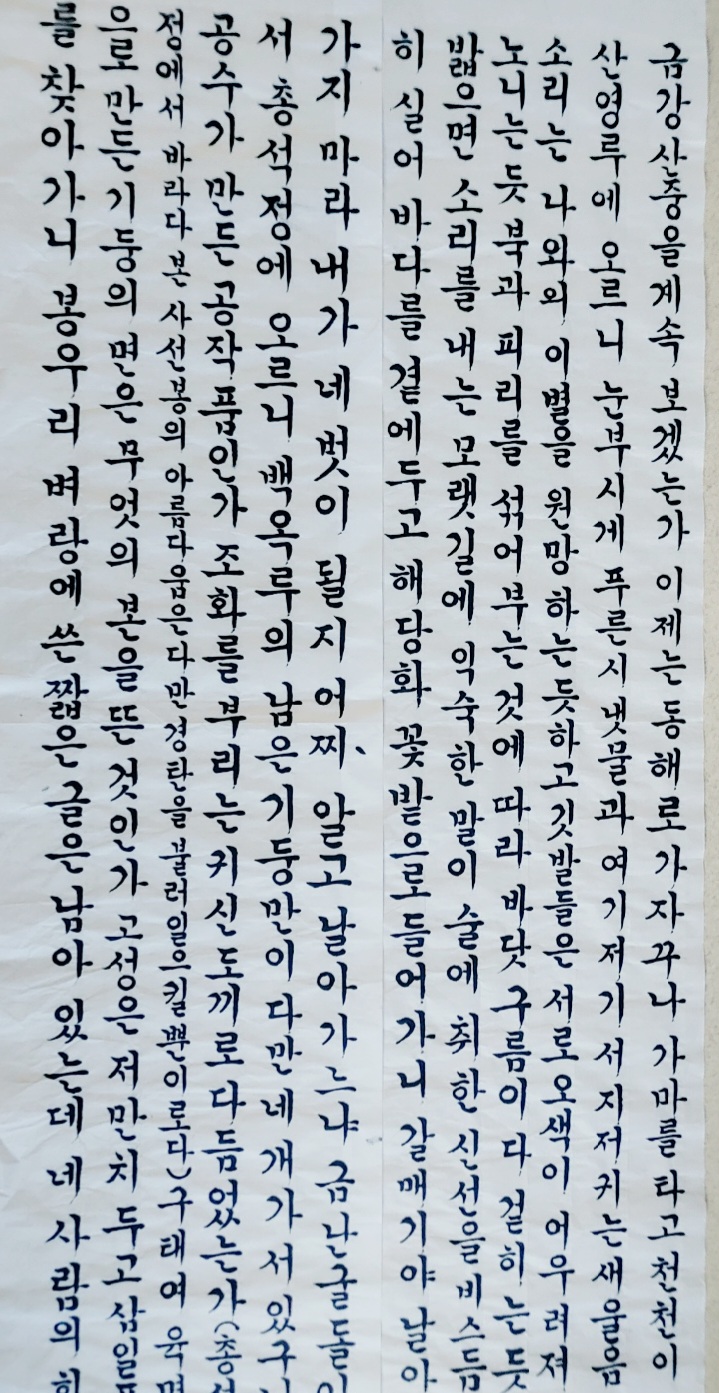 금강산중을계속 보겠는가 이제는 동해로가 자꾸나 가마를 타고 천천이
산영루에 오르니 눈부시게 푸른시냇물과 여기저기서지저귀는새울음
소리는 나와의 이별을 원망하는듯하고 깃발들은 서로 오색이 어우려져
노니는듯 북과 피리를 섞어 부는 것에 따라 바닷 구름이 다 걷히는듯
밟으면 소리를 내는 모랫길에 익숙한 말이 술에 취한 신선을 비스듬
히 실어 바다를 곁에두고 해당화 꽃밭으로 들어가니 갈매기야 날아
가지 마라 내가 네벗이 될지 어찌 알고 날아가느냐 금난굴돌이
서 총석정에 오르니 백옥루의 남은기둥만이 다만네개가 서있구나
공수가 만든 공작품인가 조화를 부리는 귀신도끼로 다듬었는가(총석
정에서 바라다 본 사선봉의 아름다움은다만 경탄을 불러일으킬뿐이로다)구태여 육면
으로만든기둥의 면은 무엇의 본을뜬 것인가 고성은 저만치 두고 삼일포
를 찾아가니 봉우리 벼랑에 쓴 짧은 글은 남아 있는데 네 사람의